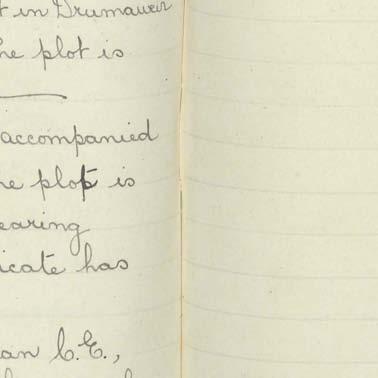 t in Drumaweir
he plot is
accompanied
he plot is
earing
icate has
an C.E.,